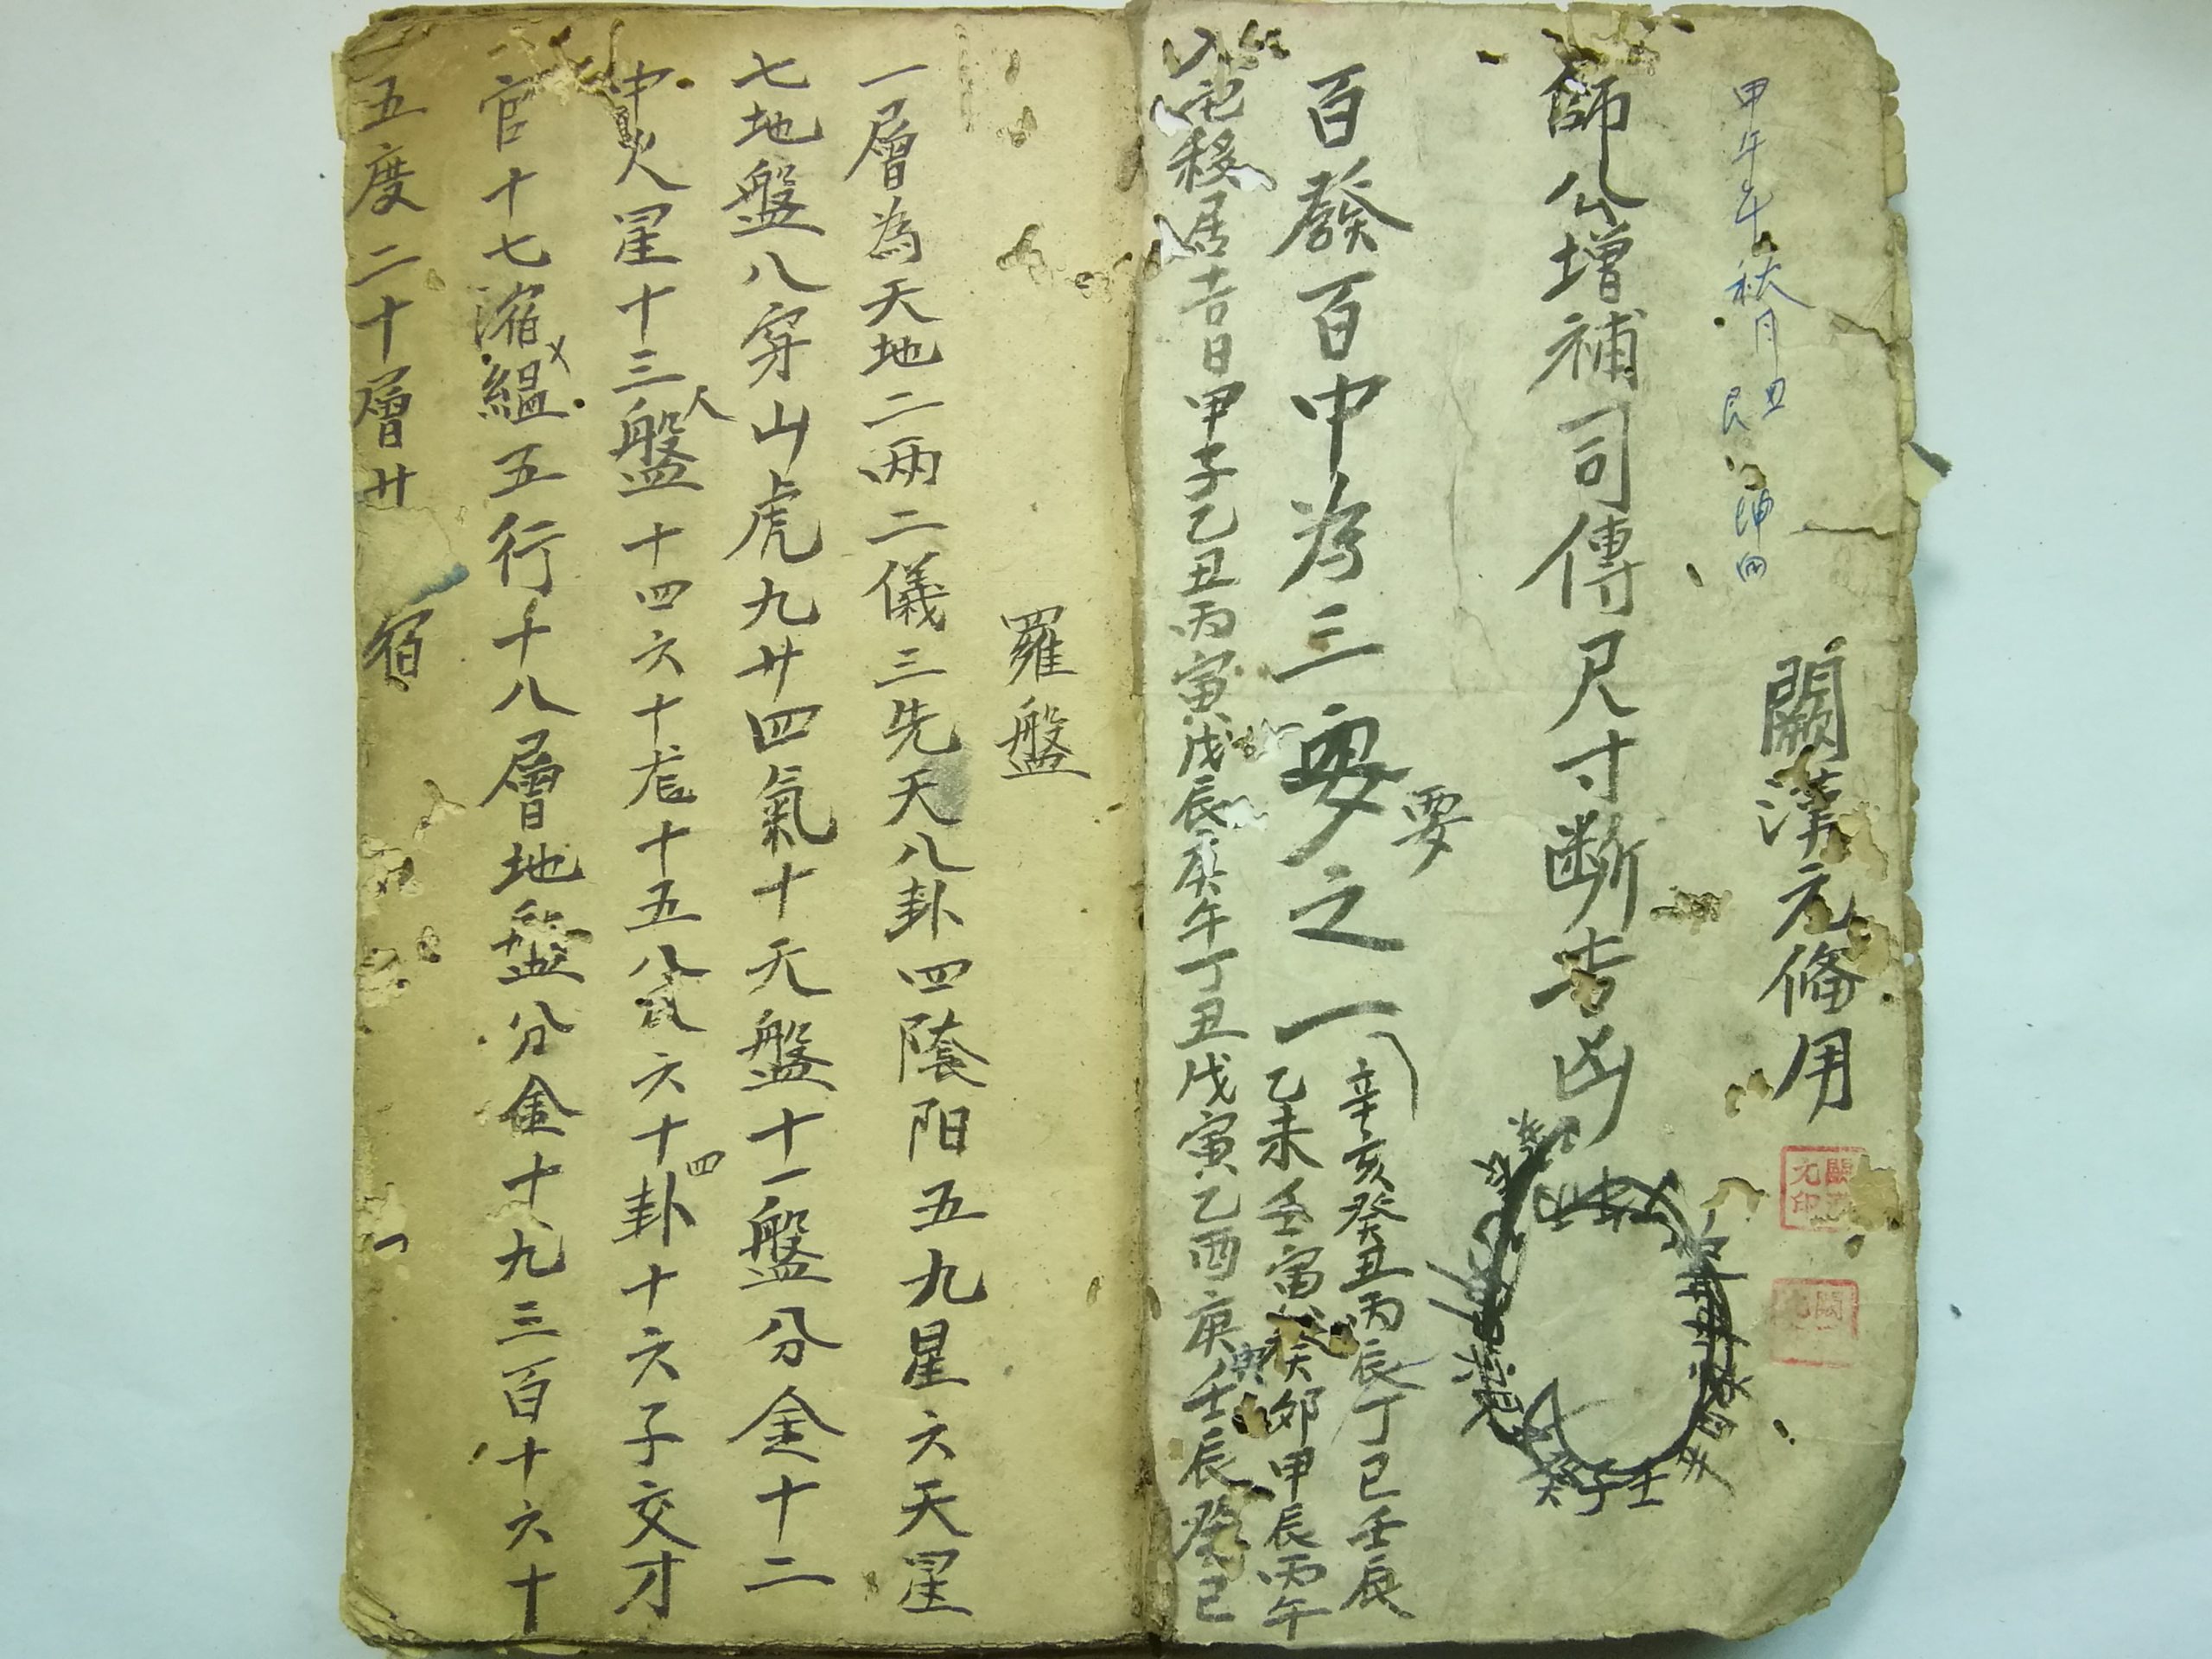 甲午年秋月
闕漢元俻用
師公增補司傳尺寸断吉凶
癸子壬
百發百中為三要之一
要
辛亥癸丑丙辰丁巳壬辰
乙未壬寅癸卯甲辰丙午
入宅移居吉日甲子乙丑丙寅戊辰庚午丁丑戊寅乙酉庚寅壬辰癸巳
羅盤
一層為天地二两二儀三先天八卦四陰阳五九星六天星
七地盤八穿山虎九廿四氣十天盤十一盤分金十二
中火星十三盤人十四六十尨十五八六十四卦十六子交才
官十七渻縕五行十八層地盤分金十九三百十六十
五度二十層廿宿